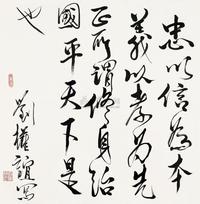 忠以信為本
義以孝為先
正所謂修身治
國平天下是
也
劉權誼寫